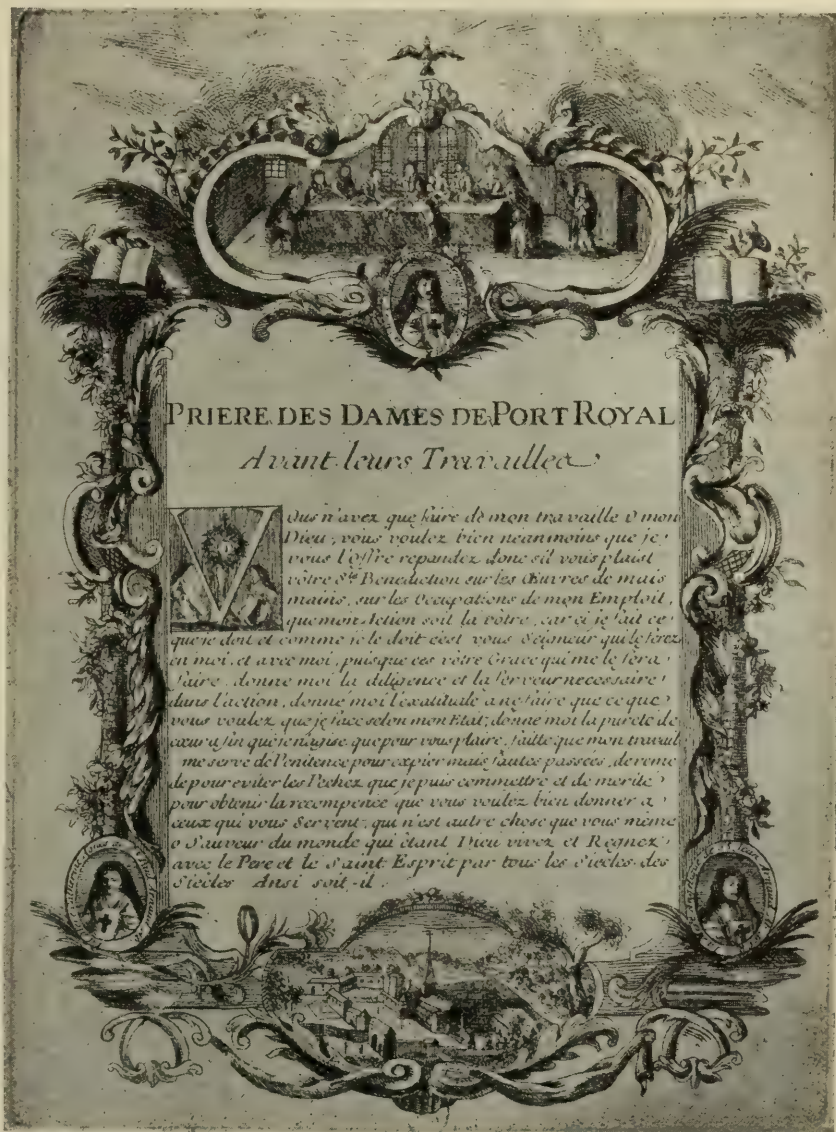 PRIERE DES DAMES DE PORT ROYAL
Avant leurs Travailles
Vous n'avez que faire de mon travaille O mon
Dieu, vous voulez bien neanmoins que je
vous l'offre repandez donc s'il vous plaist
vôtre Ste Benediction sur les Œuvres de mais
mains, sur les Occupations de mon Emploit,
que mon Action soit la vôtre, car ci je fait ce
que je doit et comme je le doit c'est vous Seigneur qui le ferez
en moi, et avec moi, puisque ces vôtre Grace qui me le fera
faire, donne moi la diligence et la ferveur necessaire
dans l'action, donne moi l'exatitude a ne faire que ce que
vous voulez que je face selon mon Etat, donne moi la pureté de
cœur afin que je n'agise que pour vous plaire, faitte que mon travail
me serve de Penitence pour expier mais fautes passées, de reme
de pour eviter les Pechez que je puis commettre et de merite
pour obtenir la recompence que vous voulez bien donner a
ceux qui vous Servent, qui n'est autre chose que vous même
o Sauveur du monde qui êtant Dieu vivez et Regnez
avec le Pere et le Saint Esprit par tous les Siecles des
Siecles Ansi soit-il.